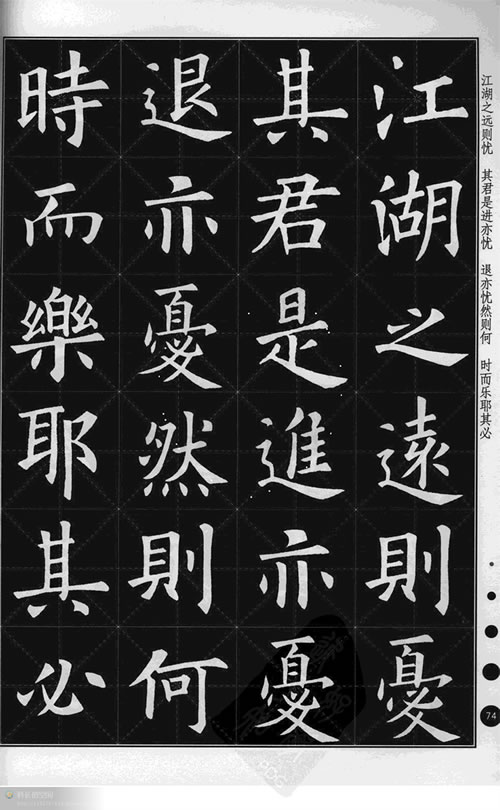 江湖之遠則憂
其君是進亦憂
退亦憂然則何
時而樂耶其必
江湖之远则忧 其君是进亦忧 退亦忧然则何 时而乐耶其必
74